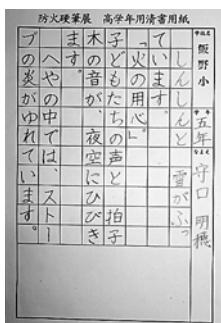 防火硬筆展　高学年用清書用紙
学校名
飯野小
学年
五年
なまえ
守口　明穂
しんしんと　雪がふっ
ています。
「火の用心。」
子どもたちの声と　拍子
木の音が、夜空にひびき
ます。
へやの中では、ストー
ブの炎がゆれています。